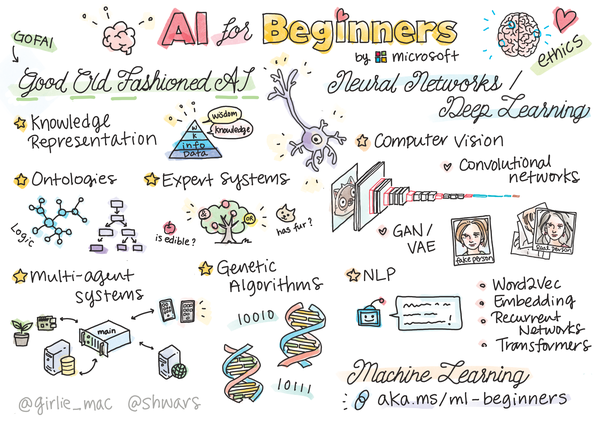 AI for Beginners
by microsoft
GOFAI
ethics
Good Old Fashioned AI
Knowledge
Representation
wisdom
knowledge
W
K
info
Data
Ontologies
Logic
Expert Systems
is edible?
OR
has fur?
Multi-agent
systems
main
Genetic
Algorithms
10010
10111
Neural Networks /
Deep Learning
Computer Vision
Convolutional
networks
GAN/
VAE
fake person
NLP
Word2Vec
Embedding
Recurrent
Networks
Transformers
Machine Learning
aka.ms/ml-beginners
@girlie_mac @shwars